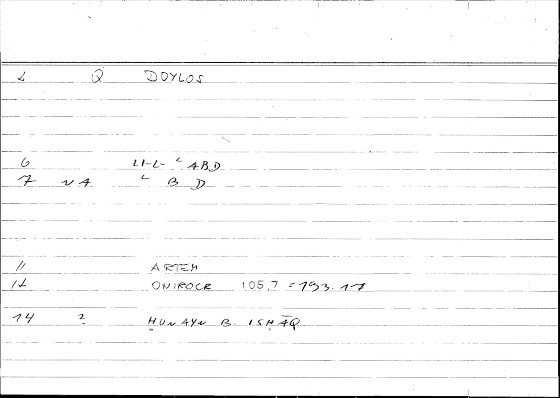 2 Q DOYLOS
6 LI-L- ʿABD
7 NA ʿ B D
11 ARTEM
12 ONIROCR 105,7 = 193.17
14 2 ḤUNAYN B. ISḤĀQ